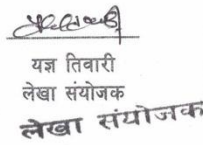 यज्ञ तिवारी
लेखा संयोजक
लेखा संयोजक